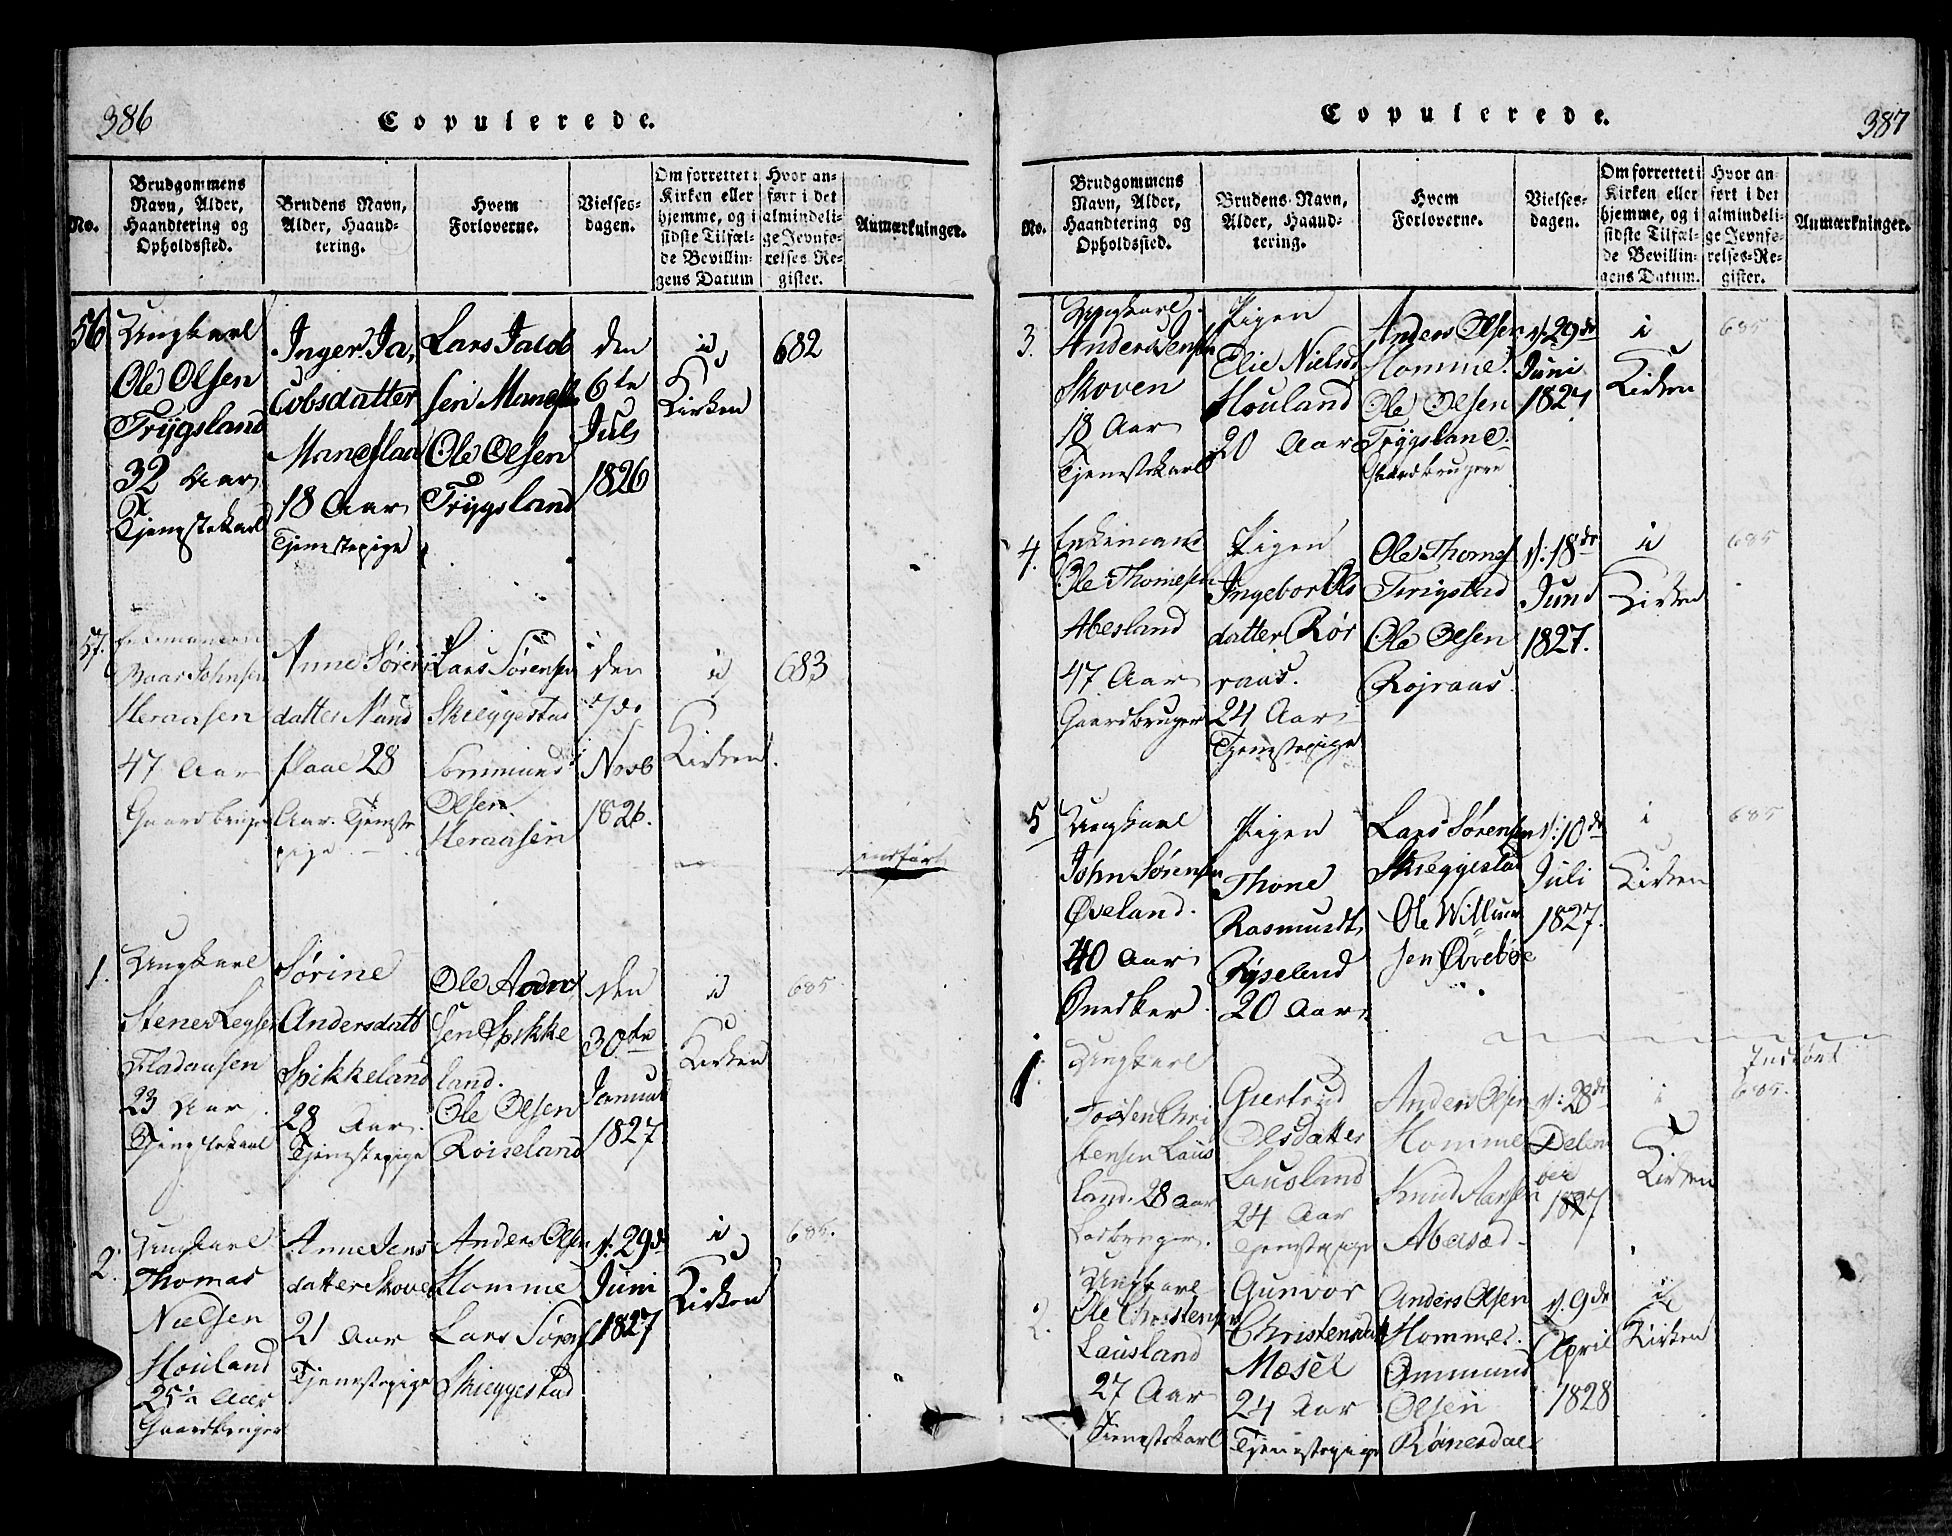 386
Copulerede.
No.
Brudgommens
Navn, Alder,
Haandtering og
Opholdssted.
Brudens Navn,
Alder, Haand-
tering.
Hvem
Forloverne.
Vielses-
dagen.
Om forrettet i
Kirken eller
hjemme, og i
sidste Tilfæl-
de Bevillin-
gens Datum
Hvor an-
ført i det
almindeli-
ge Jevnfø-
relses-Re-
gister.
Anmærkninger.
56
Ungkarl
Ole Olsen
Trygsland
32 Aar
Tjenestekarl
Inger Ja,
cobsdatter
Maneflaa
18 Aar
Tjenestepige
Lars Jacob
sen Manefl
Ole Olsen
Trygsland
den
6te
Juli
1826
i
Kirken
682
57.
Johnsen
Heraasen
47 Aar
Gaardbruger
Anne Søren
datter Mand
flaae 28
Aar. Tjeneste
pige
Lars Sørensen
Skieggestad
Sommund
Olsen
Heraasen
den
7de
Novb
1826.
i
Kirken.
683
indført
1.
Ungkarl
Stener
Fladausen
23 Aar
Tjenestekarl
Sørine
Andersdatt
Spikkeland
28 Aar.
Tjenestepige
Ole Anders
sen Spikke
land.
Ole Olsen
Roiseland
den
30te
Januar
1827
i
Kirken
685.
2.
Ungkarl
Thomas
Nielsen
Houland
25 Aar
Gaardbruger
Anne Jens
datter Skoven
21 Aar
Tjenestepige
Anders Olsen
Homme
Lars Sørens
Skieggestad
d: 29de
Juni
1827
i
Kirken
685.
387
Copulerede.
No.
Brudgommens
Navn, Alder,
Haandtering og
Opholdssted.
Brudens Navn,
Alder, Haand-
tering.
Hvem
Forloverne.
Vielses-
dagen.
Om forrettet i
Kirken eller
hjemme, og i
sidste Tilfæl-
de Bevillin-
gens Datum.
Hvor an-
ført i det
almindeli-
ge Jevnfø-
relses-Re-
gister.
Anmærkninger.
3.
Ungkarl
Anders Jensen
Skoven
18 Aar
Tjenestekarl
Pigen
Elie Nielsd
Houland
20 Aar
Anders Olsen
Homme.
Ole Olsen
Trygsland.
Gaardbrugere
d: 29de
Juni
1827
i
Kirken
685
4.
Enkemand
Ole Thomesen
Abesland
47 Aar
Gaardbruger
Pigen
Ingebor Ols
datter Røi
raas.
24 Aar
Tjenestepige
Ole Thomes
Tirigstad
Ole Olsen
Rojraas
d: 18de
Juni
1827.
i
Kirken
685
5
Ungkarl
John Sørensen
Øveland.
40 Aar
Snedker
Pigen
Thone
Rasmusdt.
Ryseland
20 Aar
Lars Sørensen
Skieggestad
Ole Willum
sen Øvrebøe
d: 10de
Juli
1827.
i
Kirken
685
Indført
1.
Ungkarl
Chri
stensen Laus
land. 28 Aar
Giertrud
Olsdatter
Lausland
24 Aar
Tjenestepige
Anders Olsen
Homme
Knud Aasen
d: 28de
Decem
ber
1827
i
Kirken
685.
2.
Ungkarl
Ole Christensen
Lausland
27 Aar
Tienestekarl
Gunvor
Christensdatt
Mæsel
24 Aar
Tjenestepige
Anders Olsen
Homme.
Ommund
Olsen
Roinesdal
d. 9de
April
1828
i
Kirken